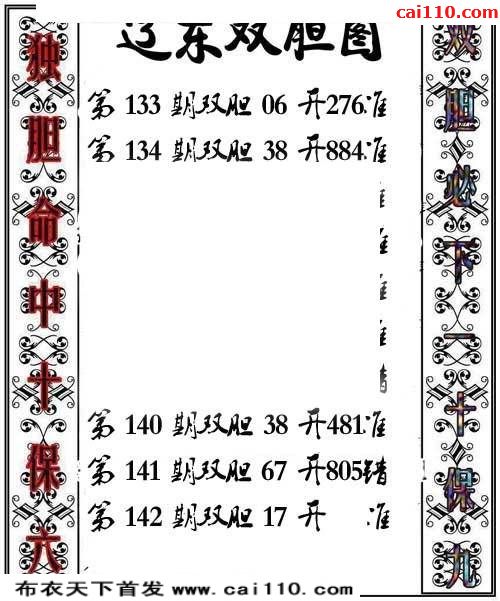 cai110.com
辽东双胆图
独胆命中十保六
第 133 期双胆 06 开276准
第 134 期双胆 38 开884准
准
准
准
准
错
第 140 期双胆 38 开481准
第 141 期双胆 67 开805错
第 142 期双胆 17 开 准
双胆必下一十保九
布衣天下首发 www.cai110.com